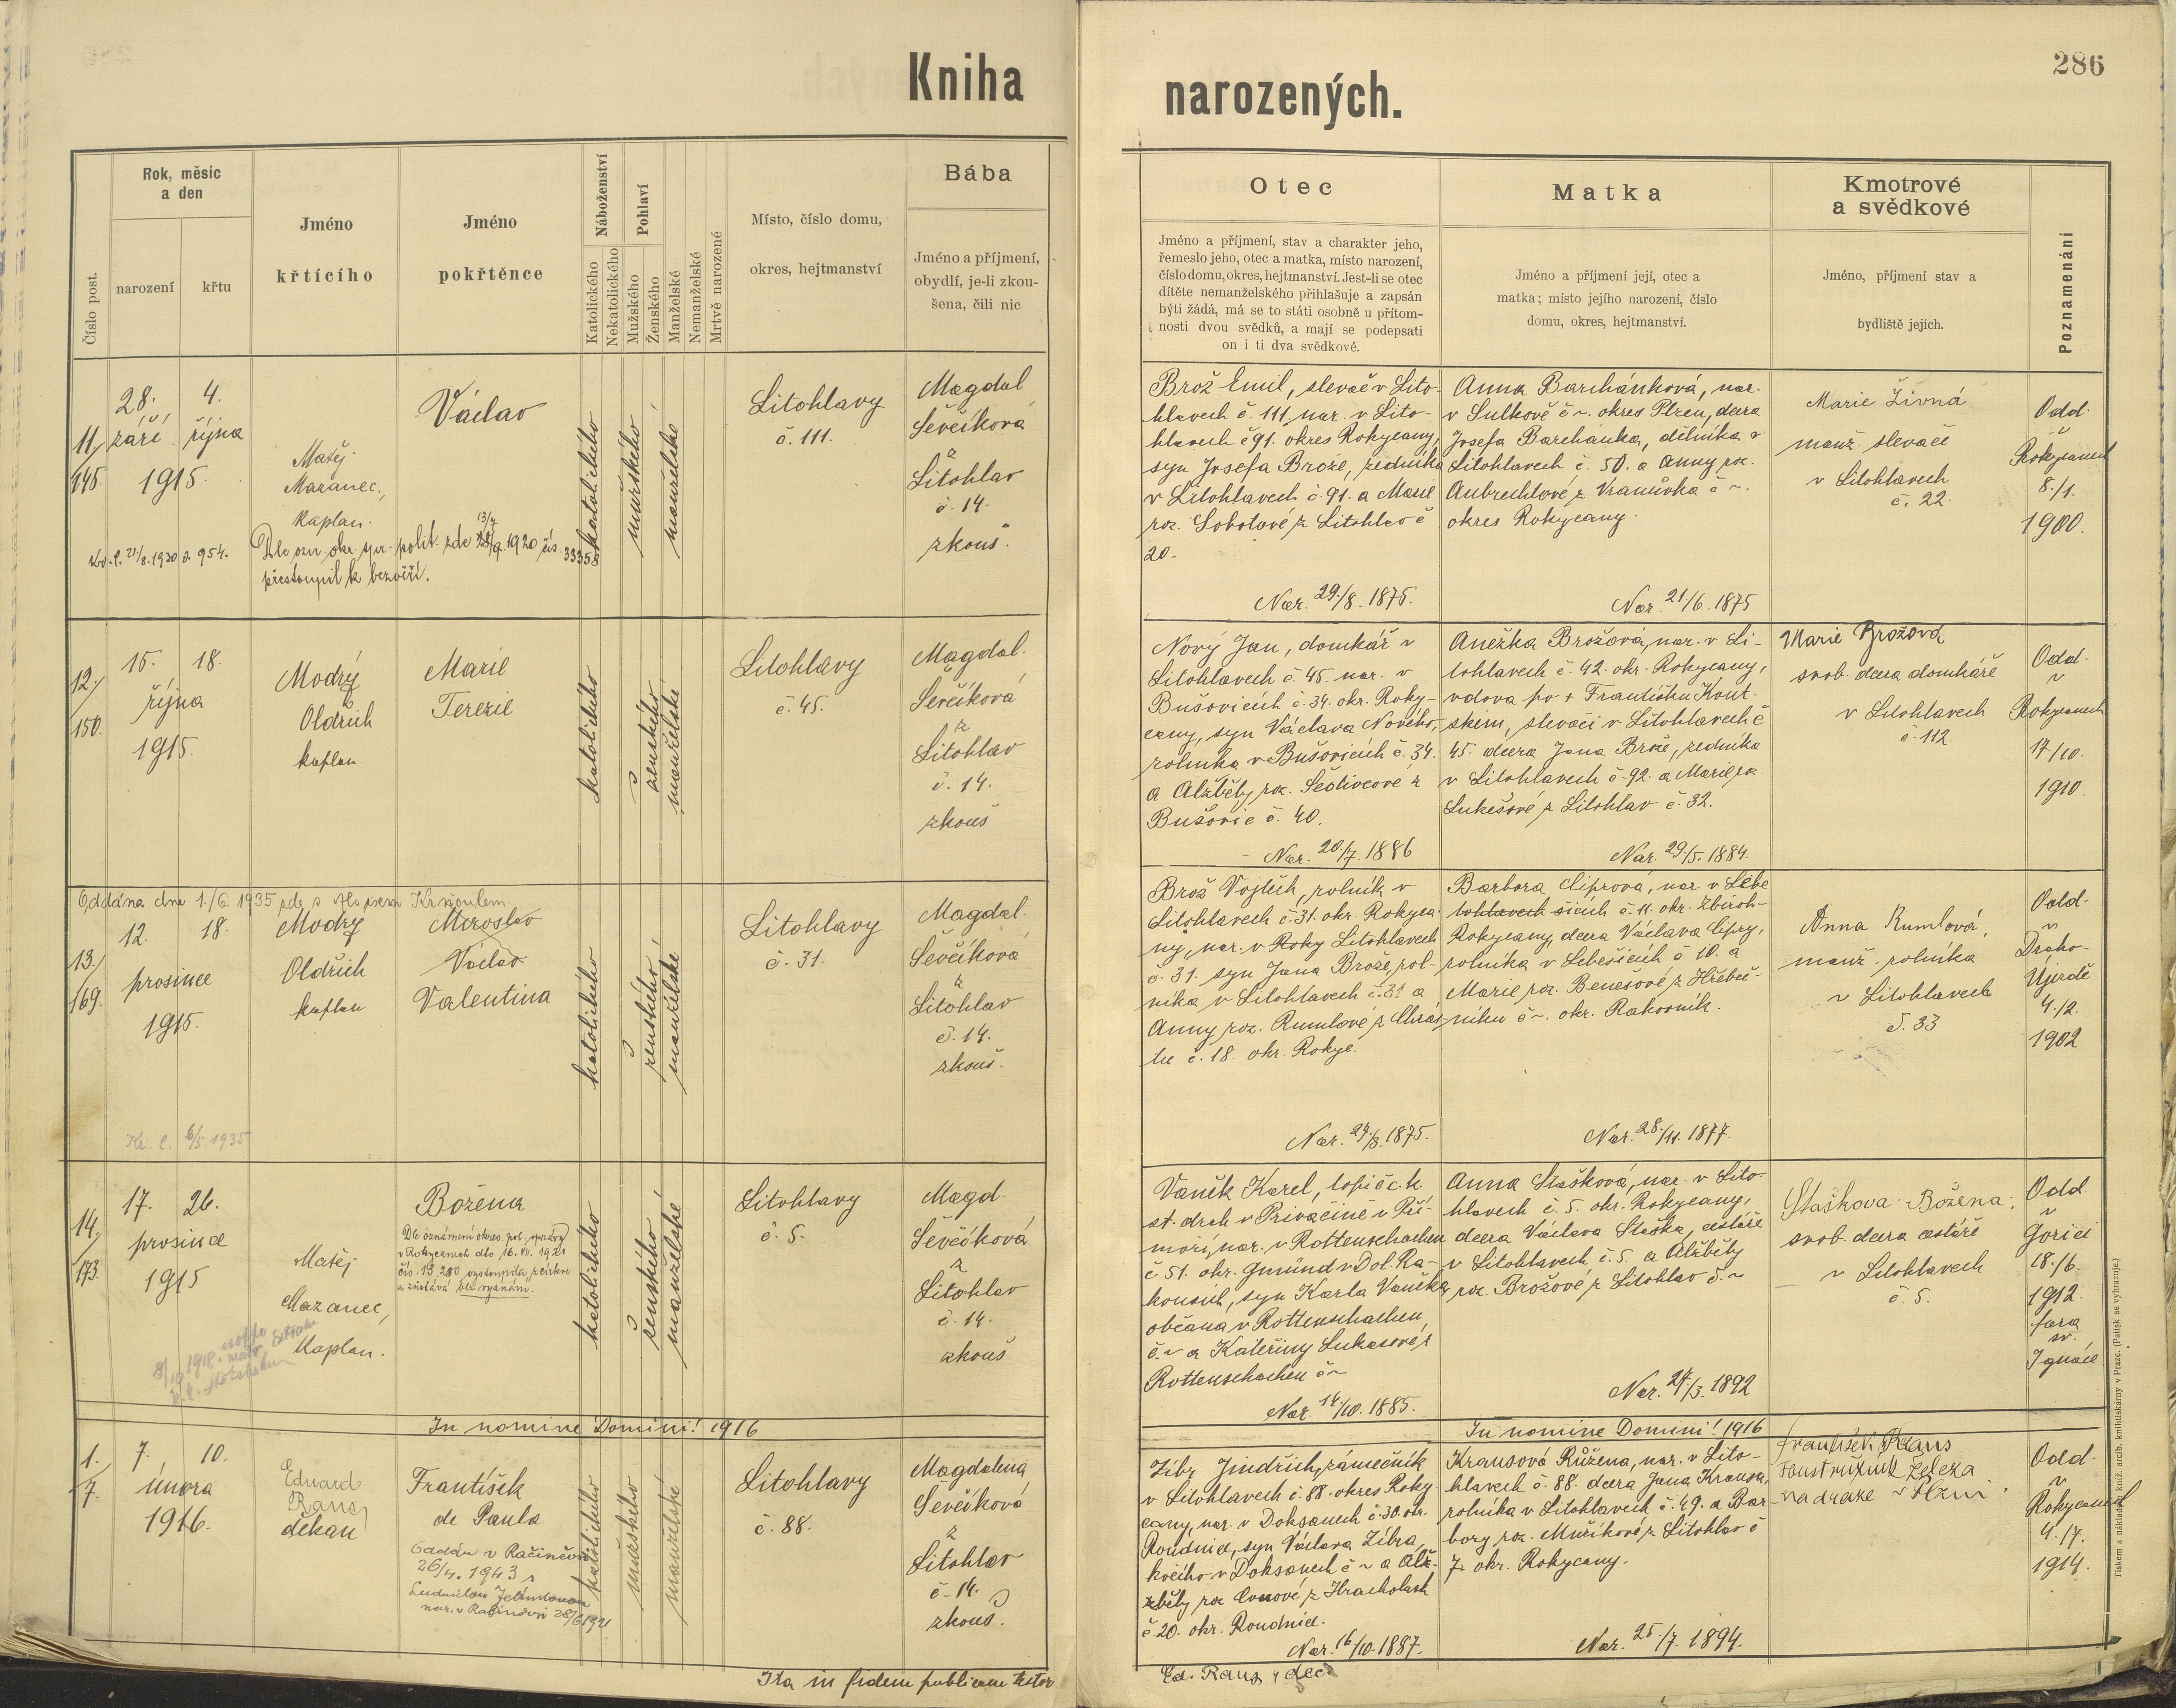 Kniha
narozených.
286
Číslo post.
Rok, měsíc
a den
narození
křtu
Jméno
křtícího
Jméno
pokřtěnce
Náboženství
Katolického
Nekatolického
Pohlaví
Mužského
Ženského
Manželské
Nemanželské
Mrtvě narozené
Místo, číslo domu,
okres, hejtmanství
Bába
Jméno a příjmení,
obydlí, je-li zkou-
šena, čili nic
Otec
Jméno a příjmení, stav a charakter jeho,
řemeslo jeho, otec a matka, místo narození,
číslo domu, okres, hejtmanství. Jest-li se otec
dítěte nemanželského přihlašuje a zapsán
býti žádá, má se to státi osobně u přítom-
nosti dvou svědků, a mají se podepsati
on i ti dva svědkové.
Matka
Jméno a příjmení její, otec a
matka; místo jejího narození, číslo
domu, okres, hejtmanství.
Kmotrové
a svědkové
Jméno, příjmení stav a
bydliště jejich.
Poznamenání
11./
145.
28. 4.
září října
1915.
Matěj
Mazanec,
kaplan.
Václav
Dle ozn. okr. spr. polit. zde 1920 čís. 33358
přestoupil k bezvěří.
Kř. l. 21/8. 1930 č. 954.
katolického
mužského
manželské
Litohlavy
č. 111.
Magdal
Ševčíková
z
Litohlav
č. 14.
zkouš.
Brož Emil, slevač v Lito-
hlavech č. 111, nar. v Lito-
hlavech č 91. okres Rokycany,
syn Josefa Brože, zedníka
v Litohlavech č. 91. a Marie
roz. Sobotové z Litohlav č
20.
Nar. 29./8. 1875.
Anna Barchánková, nar.
v Sulkově č ~. okres Plzeň, dcera
Josefa Barchánka, dělníka v
Litohlavech č. 50. a Anny roz.
Aubrechtové z Vranůvka č ~.
okres Rokycany.
Nar. 21./6. 1875
Marie Živná
manž. slevače
v Litohlavech
č. 22.
Odd.
v
Rokycanech
8./1.
1900.
12./
150.
15. 18.
října
1915.
Modrý
Oldřich
kaplan
Marie
Terezie
katolického
ženského
manželské
Litohlavy
č. 45.
Magdal.
Ševčíková
z
Litohlav
č. 14.
zkouš
Nový Jan, domkář v
Litohlavech č. 45. nar. v
Bušovicích č. 34. okr. Roky-
cany, syn Václava Nového,
rolníka v Bušovicích č. 34.
a Alžběty roz. Šedivcové z
Bušovic č. 40.
Nar. 20./7. 1886
Anežka Brožová, nar. v Li-
tohlavech č. 42. okr. Rokycany,
vdova po + Františku Kout-
ském, slevači v Litohlavech č
45. dcera Jana Brože, zedníka
v Litohlavech č. 92. a Marie roz.
Lukešové z Litohlav č. 32.
Nar. 29./5. 1884.
Marie Brožová
svob. dcera domkáře
v Litohlavech
č. 112.
Odd.
v
Rokycanech
17./10.
1910.
Oddána dne 1./6. 1935 zde s
13./
169.
12. 18.
prosince
1915.
Kř. l. 6/5. 1935
Modrý
Oldřich
kaplan
Miroslav
Václav
Valentina
katolického
ženského
manželské
Litohlavy
č. 31.
Magdal.
Ševčíková
z
Litohlav
č. 14.
zkouš.
Brož Vojtěch, rolník v
Litohlavech č. 31. okr. Rokyca-
ny, nar. v Roky Litohlavech
č. 31. syn Jana Brože, rol-
níka v Litohlavech č. 31 a
Anny roz. Rumlové z Chrás-
tu č. 18. okr. Rokyc.
Nar. 1875.
Barbora Ciprová, nar. v Lebe
tohlavech šicích č. 11. okr. Zbiroh-
Rokycany, dcera Václava Cipry,
rolníka v Lebešicích č 10. a
Marie roz. Benešové z Hřebeč-
níku č ~. okr. Rakovník.
Nar. 28./11. 1877.
Anna Rumlová,
manž. rolníka
v Litohlavech
č. 33
Odd.
v
Draho-
Újezdě
4./2.
1902
14./
173.
17. 26.
prosince
1915
Matěj
Mazanec,
kaplan.
Božena
Dle oznámení okres. pol. správy
v Rokycanech dto 16. VII. 1921
čís. 19.280 vystoupila z církve
a zůstává bez vyznání.
katolického
ženského
manželské
Litohlavy
č. 5.
Magd.
Ševčíková
z
Litohlav
č. 14.
zkouš
Vaněk Karel, topič c. k.
st. drah v Privačině v Pří-
moří, nar. v Rottenschachen
č. 51. okr. Gmünd v Dol. Ra-
kousích, syn Karla Vaněka,
občana v Rottenschachen
č. ~ a Kateřiny Lukasové z
Rottenschachen č ~
Nar. 14./10. 1885.
Anna Stašková, nar. v Lito-
hlavech č. 5. okr. Rokycany,
dcera Václava Staška, cestáře
v Litohlavech č. 5. a Alžběty
roz. Brožové z Litohlav č. ~
Nar. 24./3. 1892
Staškova Božena.
svob. dcera cestáře
v Litohlavech
č. 5.
Odd.
v
Gorici
18./6.
1912.
fara
sv.
Ignáce
In nomine Domini! 1916
In nomine Domini! 1916
1.
7.
7. 10.
února
1916.
Eduard
Raus
děkan
František
de Paula
Oddán v Račiněvsi
26/4. 1943 s
Ludmilou Jelínkovou
nar. v Račiněvsi 28/6 1921
katolického
mužského
manželské
Litohlavy
č. 88.
Magdalena
Ševčíková
z
Litohlav
č. 14.
zkouš.
Zibr Jindřich, zámečník
v Litohlavech č. 88. okres Roky
cany, nar. v Doksanech č. 30. okr.
Roudnice, syn Václava Zíbra,
kočího v Doksanech č ~ a Alž-
žběty roz. Conové z Hracholusk
č 20. okr. Roudnice.
Nar. 16/10. 1887.
Krausová Růžena, nar. v Lito-
hlavech č. 88. dcera Jana Krause,
rolníka v Litohlavech č. 49. a Bar-
bory roz. Mužíkové z Litohlav č
7. okr. Rokycany.
Nar. 25./7. 1894.
František Kraus
soustružník železa
na dráze v Plzni.
Odd.
v
Rokycanech
4./7.
1914.
Ita in fidem publicam testor
Ed. Raus, dec.
Tiskem a nákladem kníž. arcib. knihtiskárny v Praze. (Patisk se vyhrazuje.)